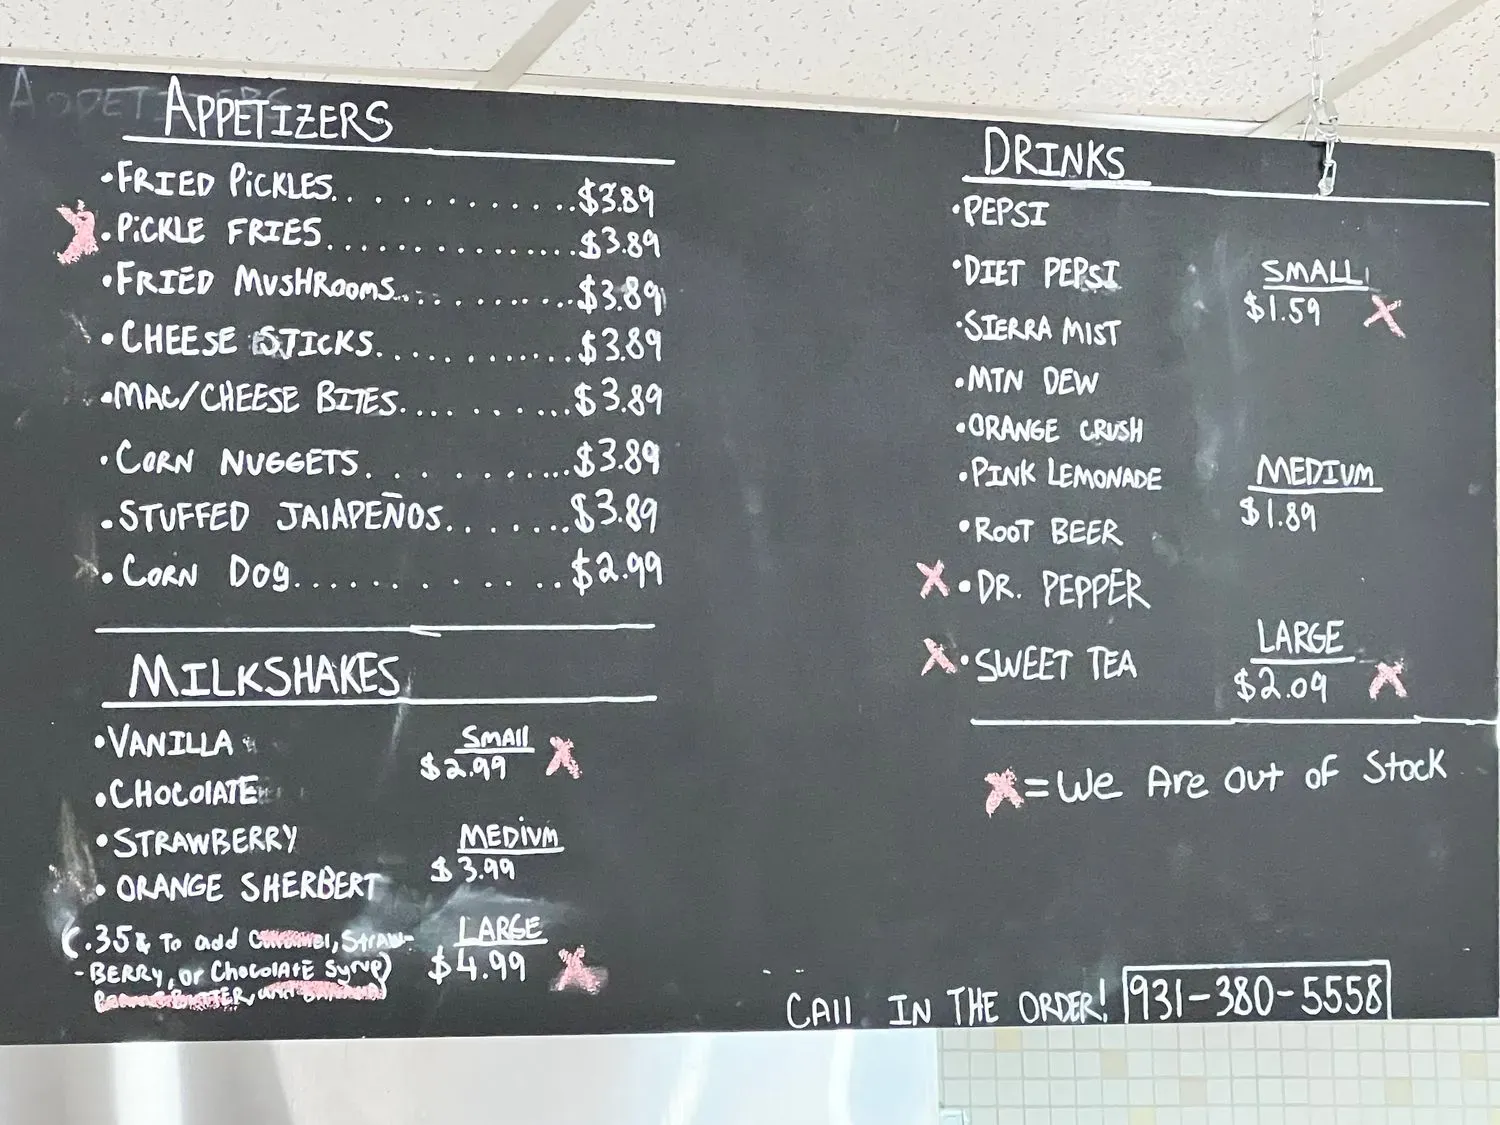 APPETIZERS
APPETIZERS
•FRIED PICKLES. . . . . . . . . . . . .$3.89
X •PICKLE FRIES. . . . . . . . . . . . . . .$3.89
•FRIED MUSHROOMS. . . . . . . . . . .$3.89
•CHEESE STICKS. . . . . . . . . . . . .$3.89
•MAC/CHEESE BITES. . . . . . . . . . .$3.89
•CORN NUGGETS. . . . . . . . . .$3.89
•STUFFED JALAPEÑOS. . . . . . . .$3.89
•CORN DOG. . . . . . . . . . . . .$2.99
MILKSHAKES
•VANILLA
•CHOCOLATE
•STRAWBERRY
•ORANGE SHERBERT
SMALL
$2.99 X
MEDIUM
$3.99
LARGE
$4.99 X
(.35¢ TO add Caramel, STRAW-
-BERRY, or CHOCOLATE SYRUP)
DRINKS
•PEPSI
•DIET PEPSI
•SIERRA MIST
•MTN DEW
•ORANGE CRUSH
•PINK LEMONADE
•ROOT BEER
X •DR. PEPPER
X •SWEET TEA
SMALL
$1.59 X
MEDIUM
$1.89
LARGE
$2.09 X
X = We Are Out of Stock
CALL IN THE ORDER! 931-380-5558